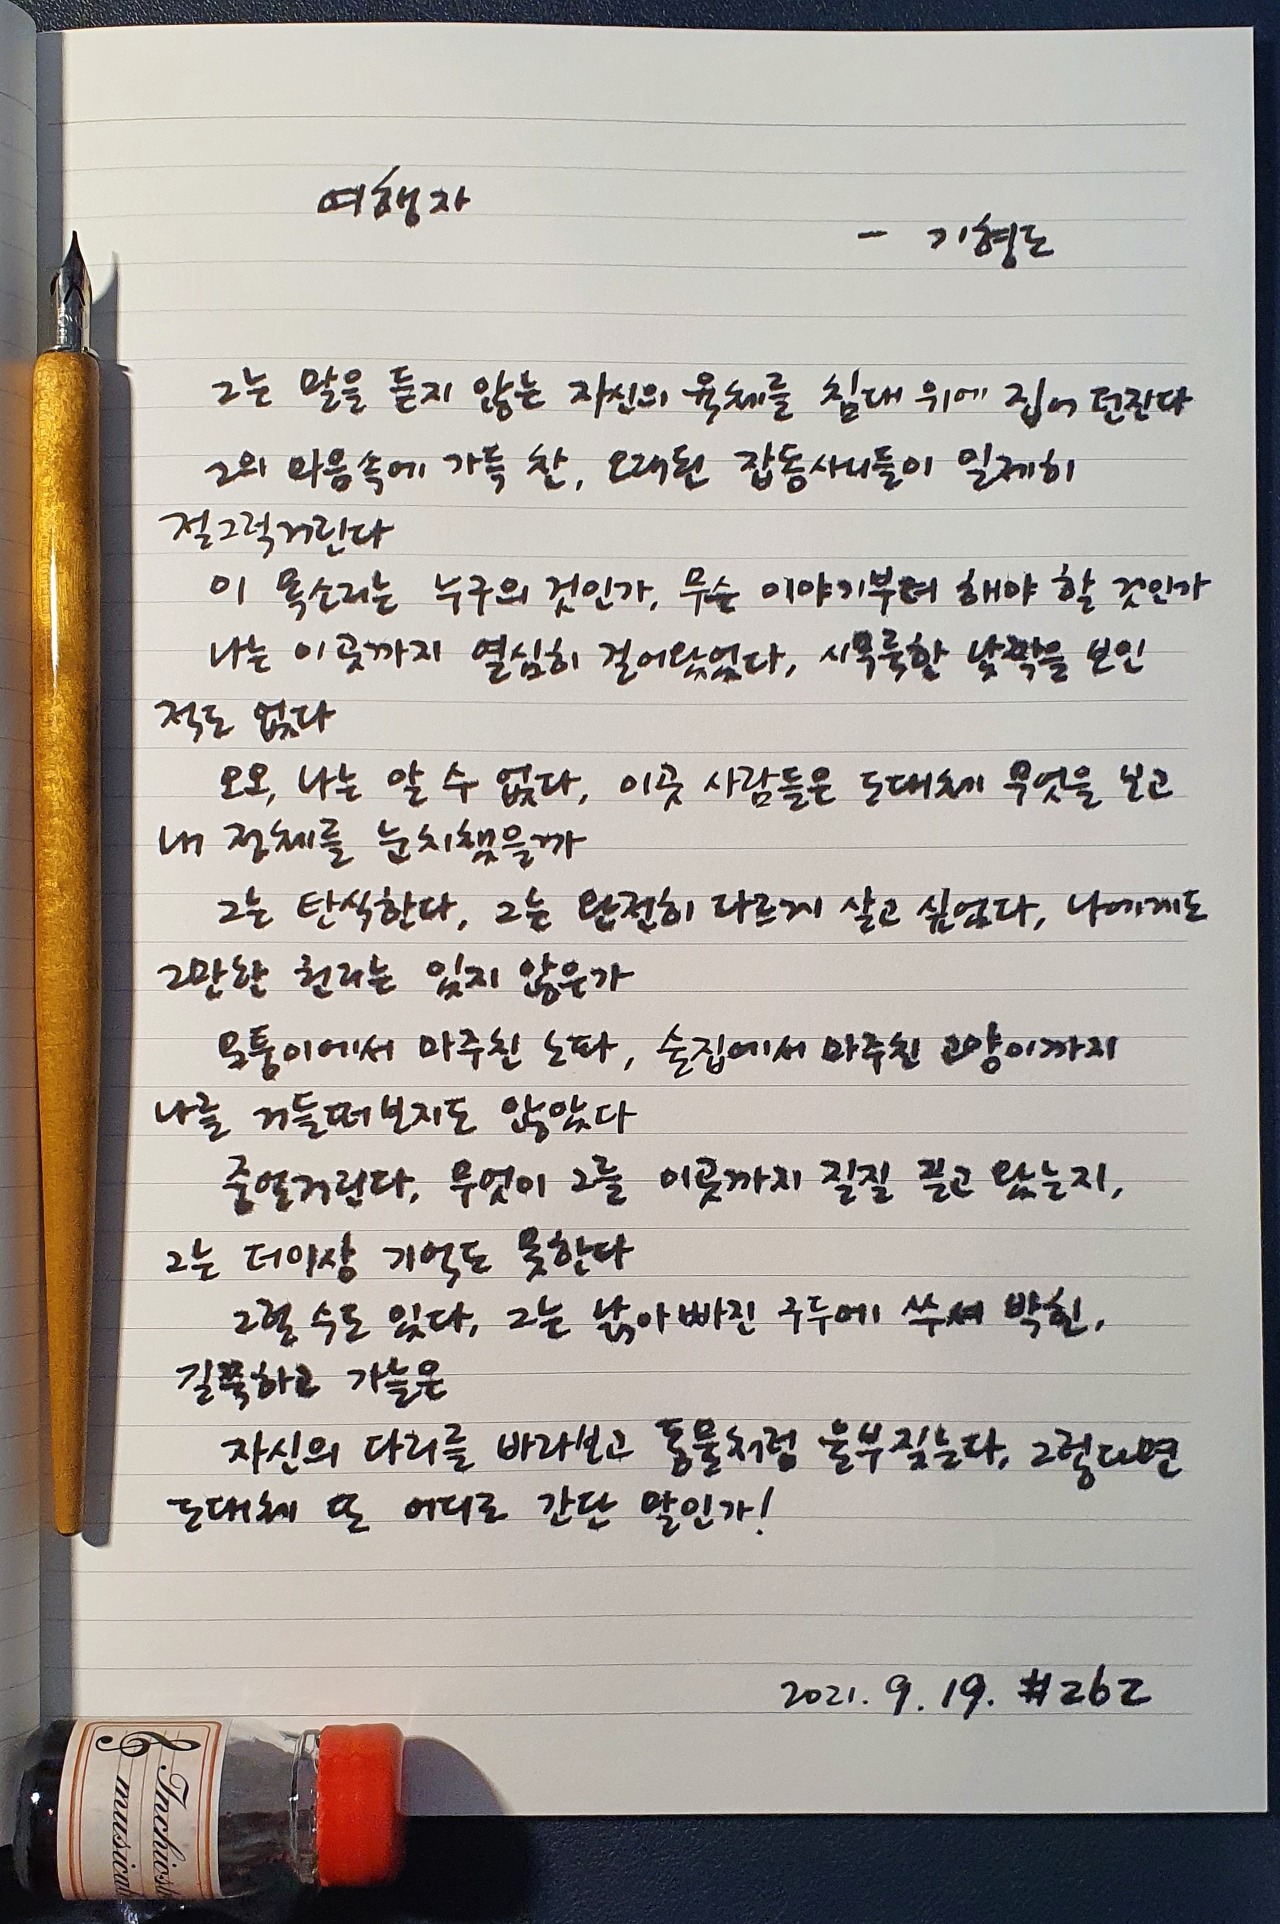 여행자
- 기형도
그는 말을 듣지 않는 자신의 육체를 침대 위에 집어 던진다
그의 마음속에 가득 찬, 오래된 잡동사니들이 일제히
절그럭거린다
이 목소리는 누구의 것인가, 무슨 이야기부터 해야 할 것인가
나는 이곳까지 열심히 걸어왔었다, 시무룩한 낯짝을 보인
적도 없다
오오, 나는 알 수 없다, 이곳 사람들은 도대체 무엇을 보고
내 정체를 눈치챘을까
그는 탄식한다, 그는 완전히 다르게 살고 싶었다, 나에게도
그만한 권리는 있지 않은가
모퉁이에서 마주친 노파, 술집에서 마주친 고양이까지
나를 거들떠보지도 않았다
중얼거린다, 무엇이 그를 이곳까지 질질 끌고 왔는지,
그는 더이상 기억도 못한다
그럴 수도 있다, 그는 낡아빠진 구두에 쑤셔 박힌,
길쭉하고 가늘은
자신의 다리를 바라보고 동물처럼 울부짖는다, 그렇다면
도대체 또 어디로 간단 말인가!
2021. 9. 19. #262
musical